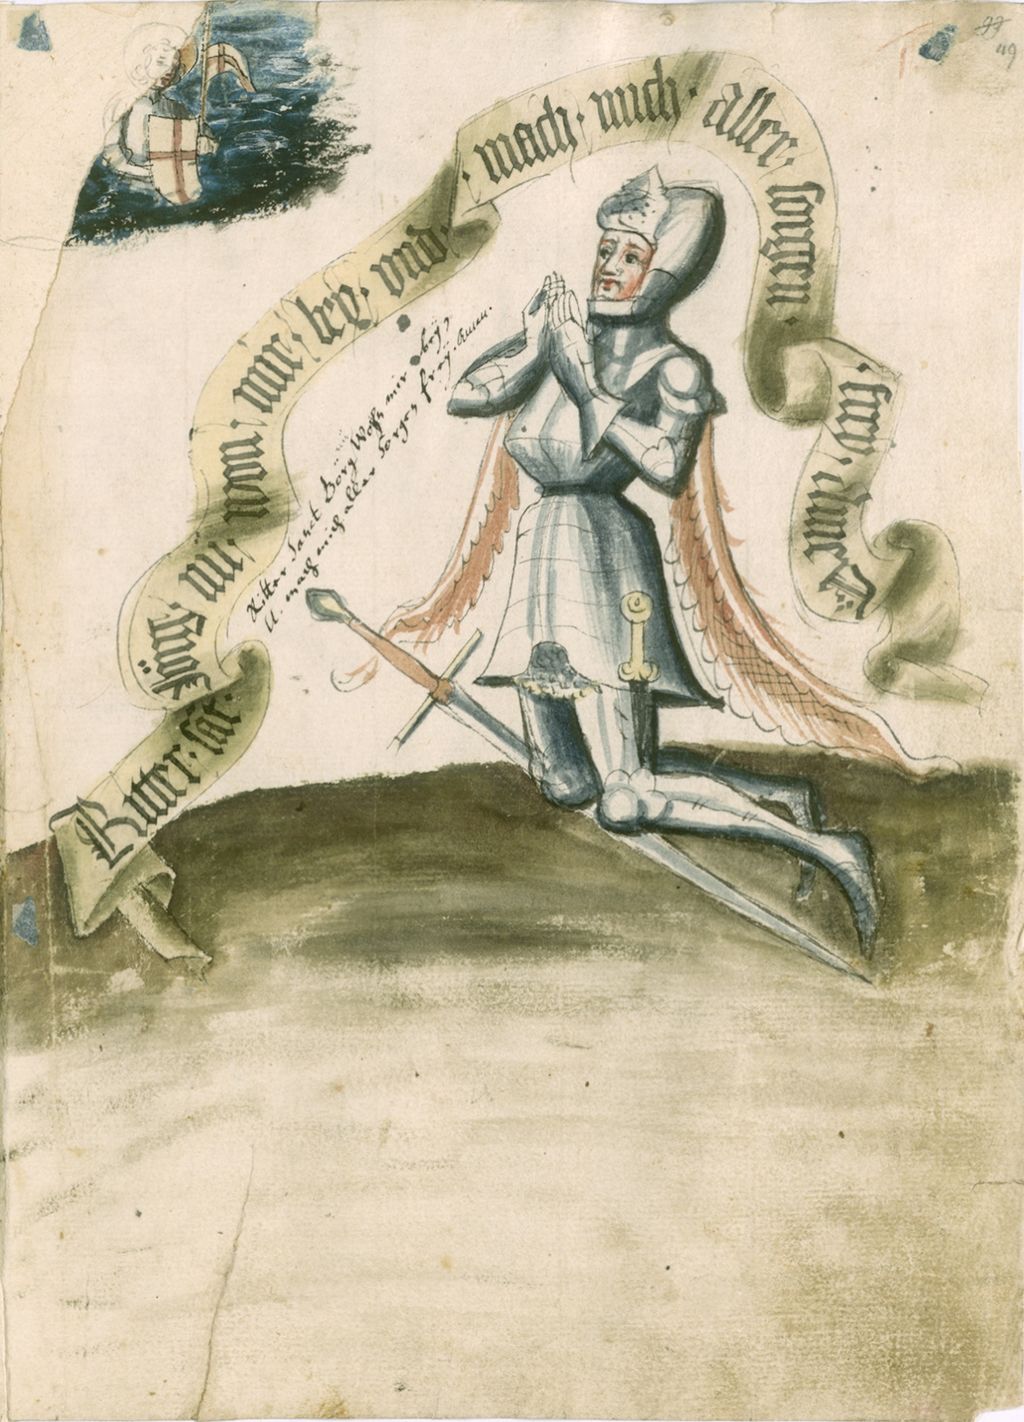 Ritter · sāt · Jörig · nū · won · mir · bey · vnd · mach · mich · Aller · sorgen · frey · Amē
Ritter Sanct Görg Wohn mir beÿ,
U. mach mich aller Sorgen freÿ. Amen.
49